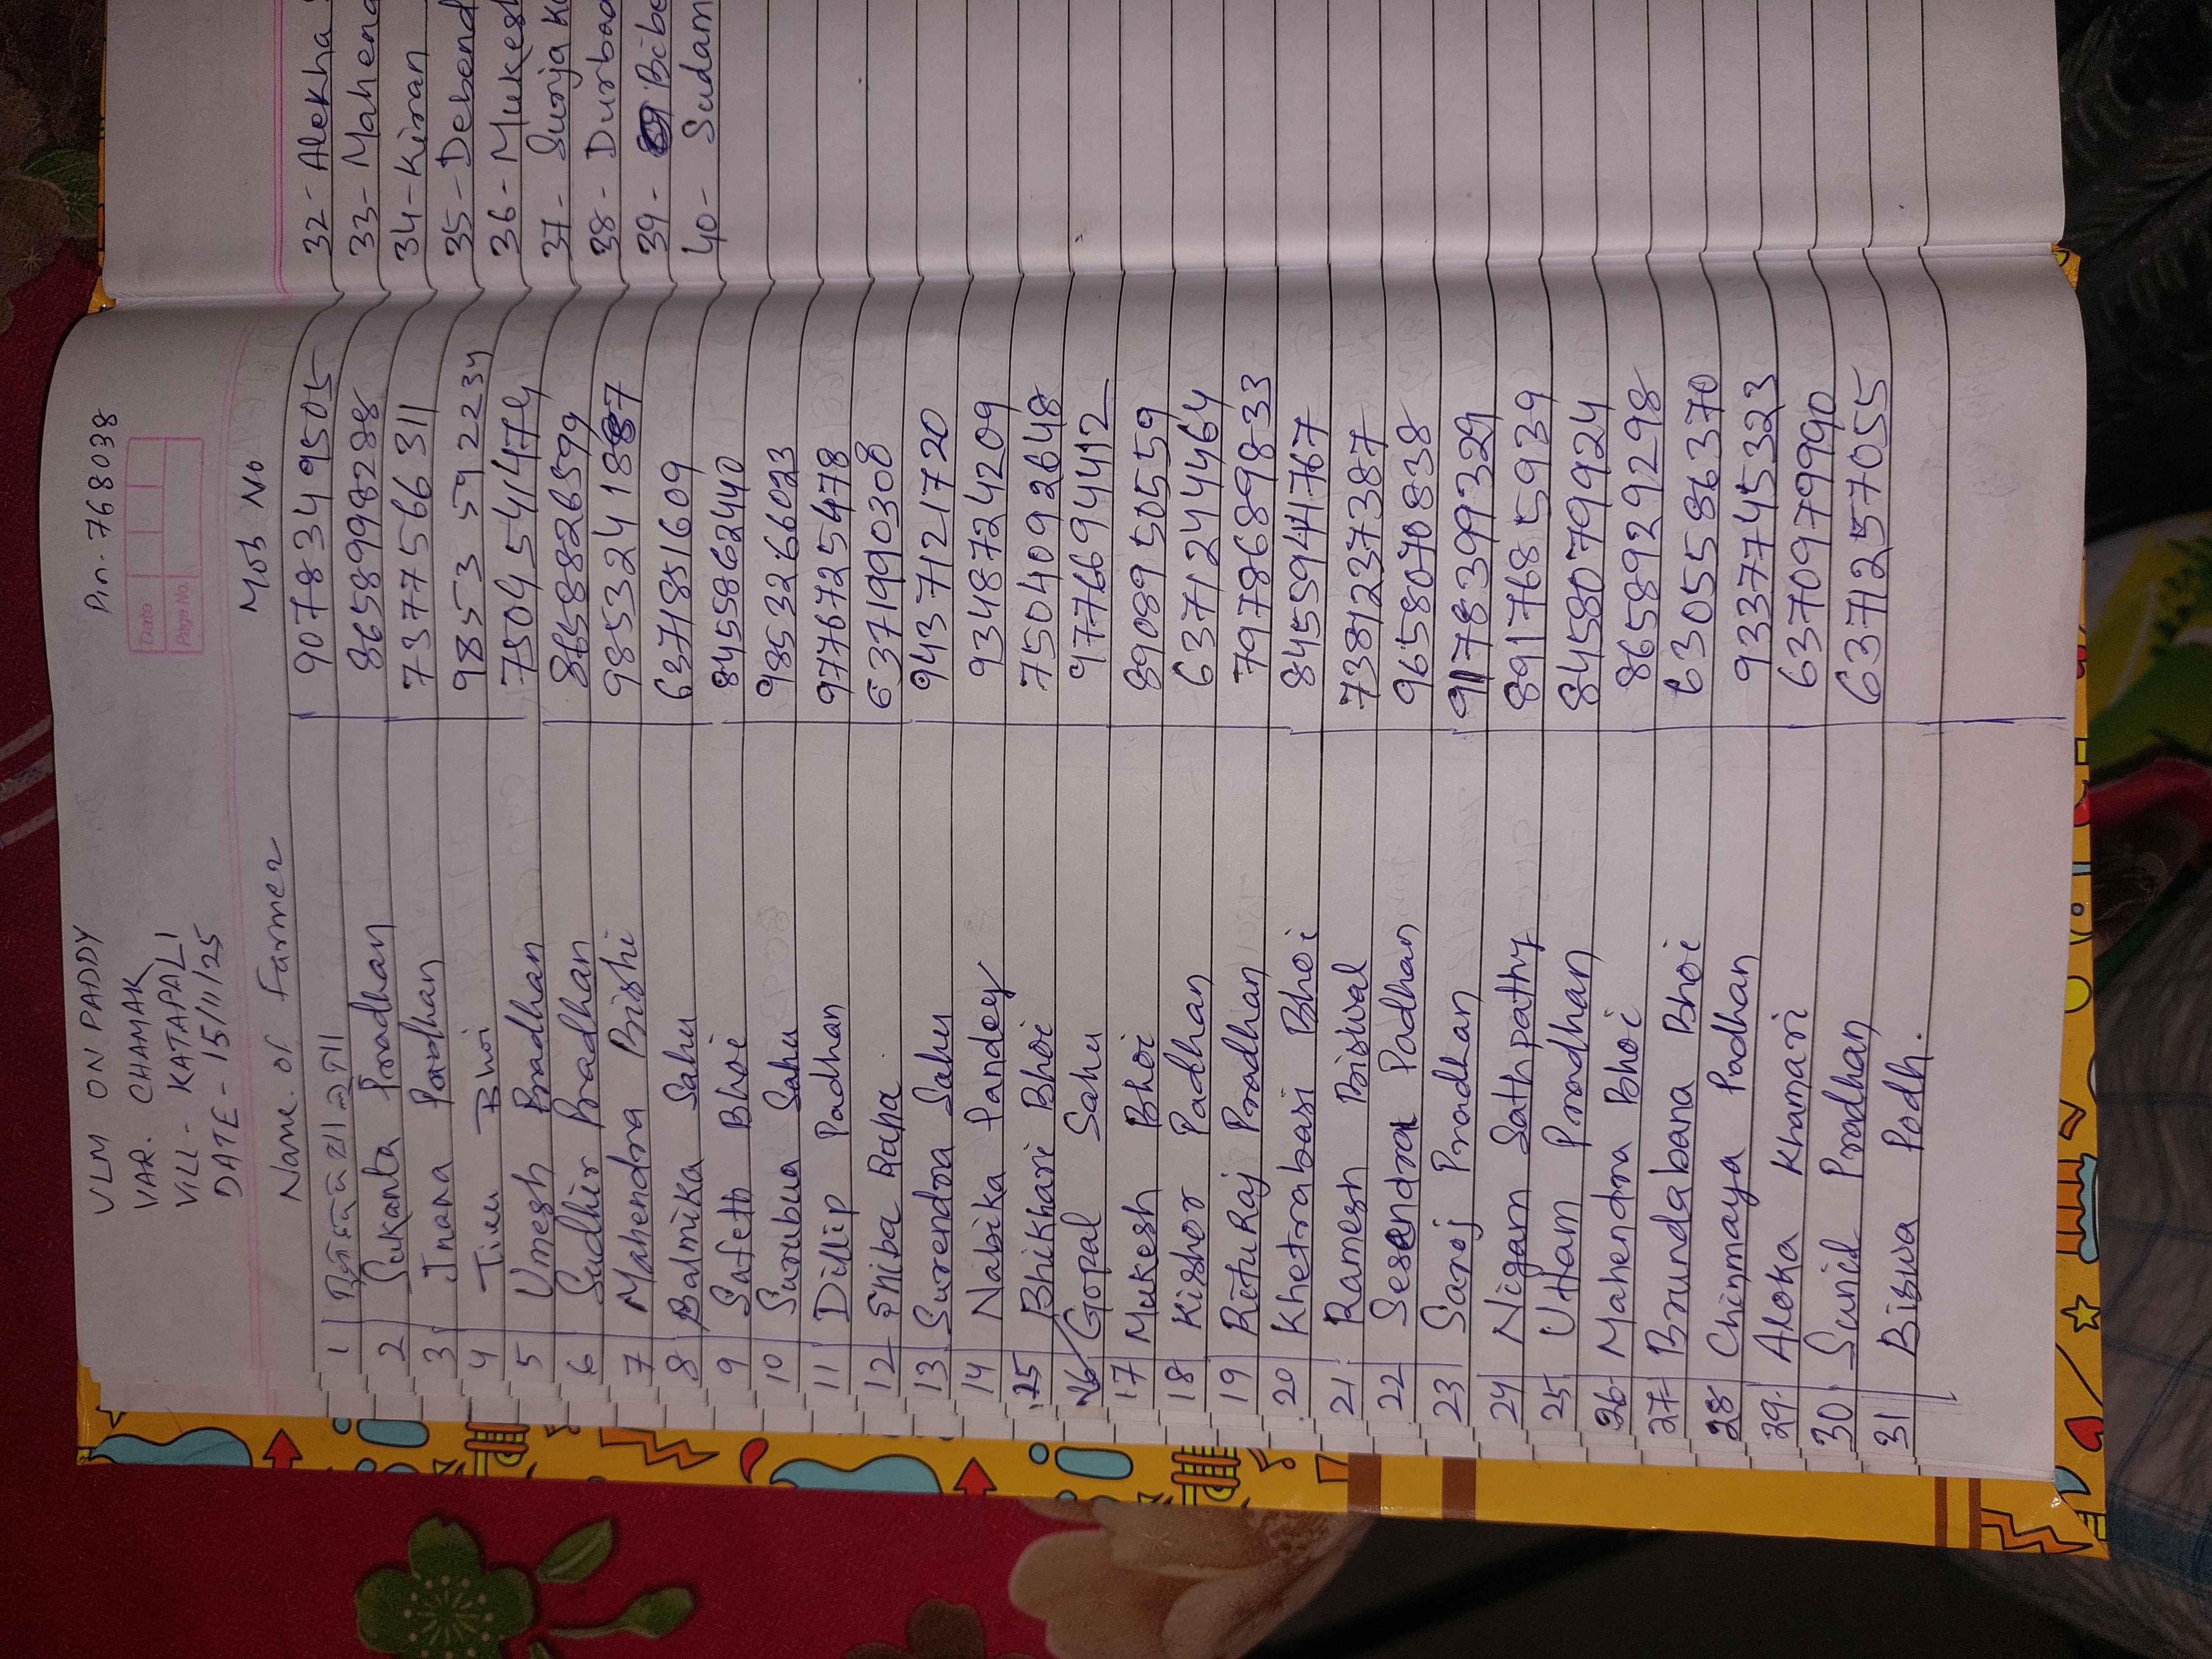 VLM ON PADDY Pin. 768038
VAR. CHAMAK
VILL - KATAPALI
DATE - 15/11/25
Date
Page No.
Name. of Farmer Mob No
1 9078349505
2 Sukanta Pradhan 8658998288
3 Jnana Pardhan 7377566311
4 Tinu Bhoi 9853592234
5 Umesh Pradhan 7504541474
6 Sudhir Pradhan 8658826599
7 Mahendra Bishi
8 Balmika Sahu 6371851609
9 Safett Bhoi 8455862440
10 Surubua Sahu 9853266023
11 Dillip Padhan 9776725478
12 Shiba Rupa 6371990308
13 Surendra Sahu 9437121720
14 Nabika Pandey 9348724209
15 Bhikhari Bhoi 7504092648
16 Gopal Sahu 9776694412
17 Mukesh Bhoi 8908950559
18 Kishor Padhan 6371244464
19 RituRaj Pradhan 7978689833
20 Khetrabasi Bhoi 8455944767
21 Ramesh Biswal 7381237387
22 Sesendra Padhan 9658070838
23 Saroj Pradhan 9178399329
24 Nigam Sathpathy 8917685939
25 Uttam Pradhan 8458079924
26 Mahendra Bhoi 8658929298
27 Brundabana Bhoi 6305586370
28 Chinmaya Padhan 9337745323
29. Aloka Khamari 6370979990
30 Sunil Pradhan 6371257055
31 Biswa Podh.
32 - Alekha
33 - Mahend
34 - Kiran
35 - Debend
36 - Mukesh
37 - Surja K
38 - Durbad
39 - Bibe
40 - Sudam